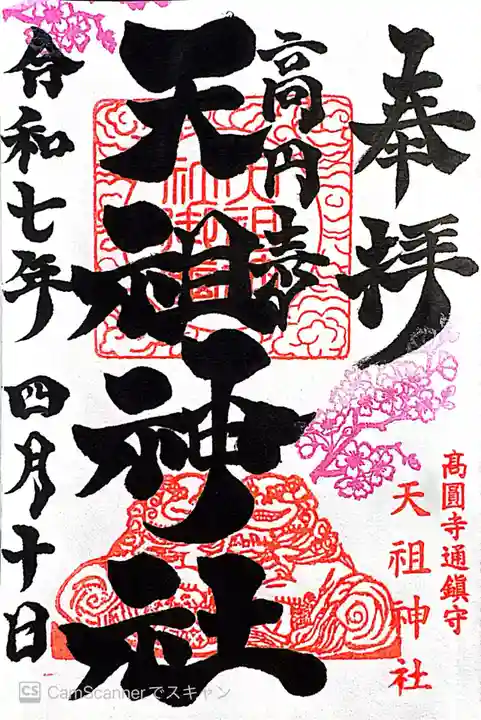 奉拝
高円寺
天祖神社
令和七年 四月十日
髙圓寺通鎮守
天祖神社
CS CamScannerでスキャン